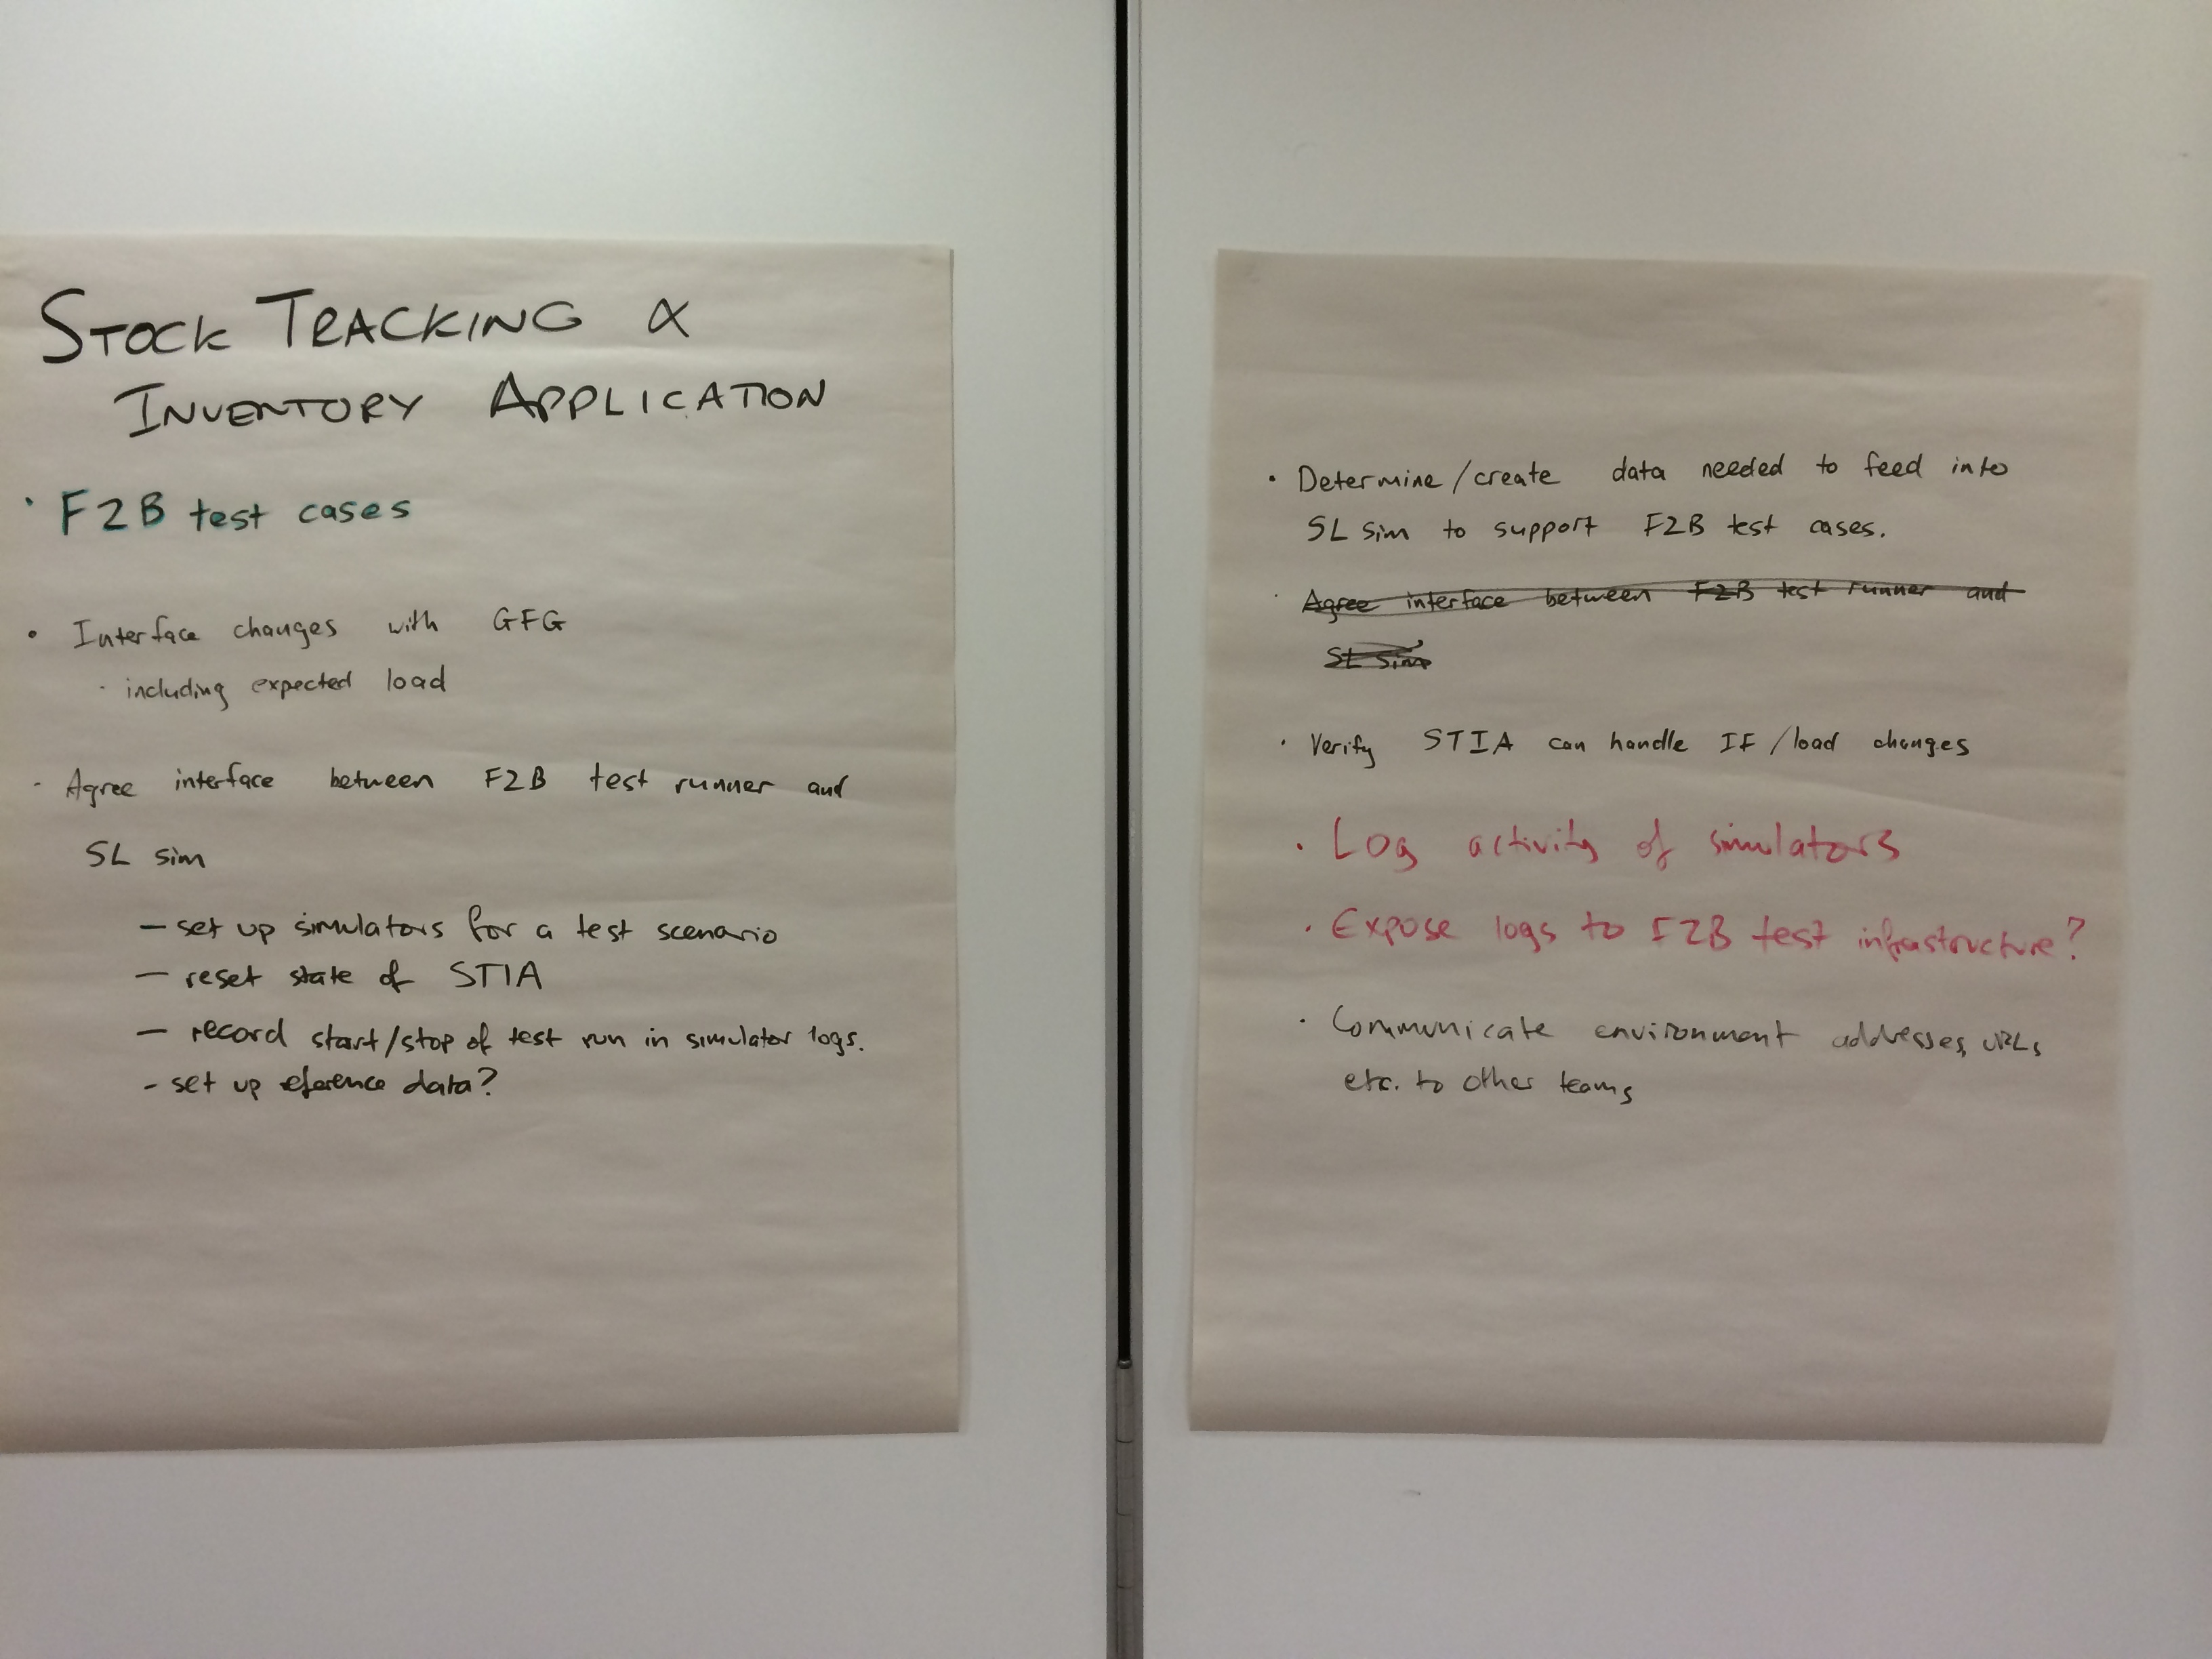 STOCK TRACKING &
INVENTORY APPLICATION
· F2B test cases
· Interface changes with GFG
· including expected load
- Agree interface between F2B test runner and
SL sim
— set up simulators for a test scenario
— reset state of STIA
— record start/stop of test run in simulator logs.
- set up reference data?
· Determine/create data needed to feed into
SL sim to support F2B test cases.
· Agree interface between F2B test runner and
SL sim
· Verify STIA can handle IF/load changes
· Log activity of simulators
· Expose logs to F2B test infrastructure?
· Communicate environment addresses, URLs
etc. to other teams